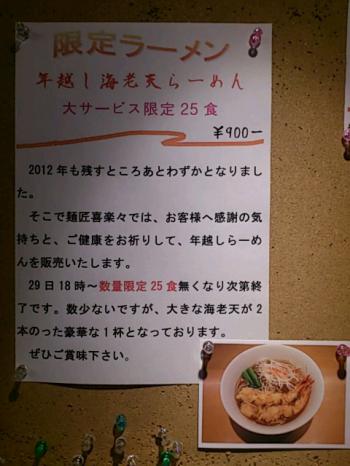 限定ラーメン
年越し海老天らーめん
大サービス限定25食
¥900ー
2012年も残すところあとわずかとなりまし
た。
そこで麺匠喜楽々では、お客様へ感謝の気
持ちと、ご健康をお祈りして、年越しらーめ
んを販売いたします。
29日18時～数量限定25食無くなり次第終
了です。数少ないですが、大きな海老天が2
本のった豪華な1杯となっております。
ぜひご賞味下さい。